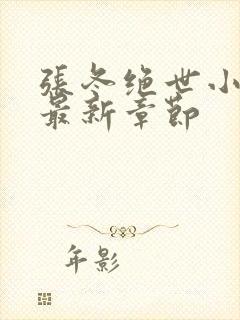 張冬绝世小
最新章節
年影